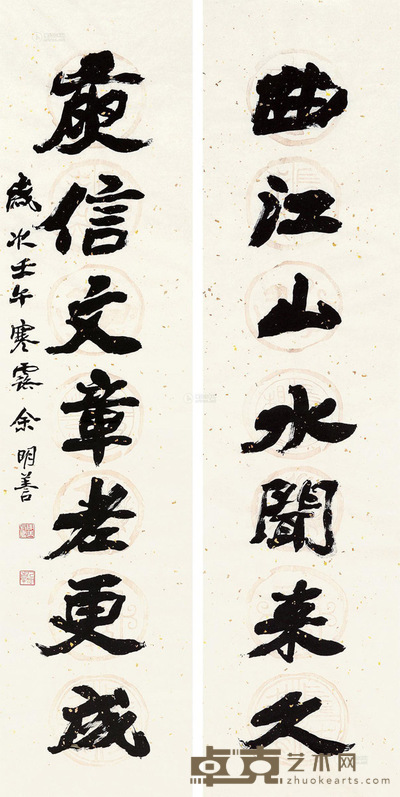 曲江山水聞来久
庾信文章老更成
歲次壬午寒露余明善
卓克艺术网
zhuokearts.com